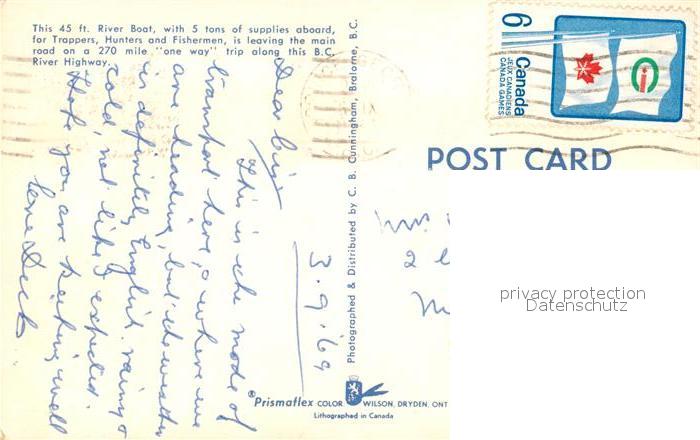 This 45 ft. River Boat, with 5 tons of supplies aboard,
for Trappers, Hunters and Fishermen, is leaving the main
road on a 270 mile "one way" trip along this B.C.
River Highway.
6
Canada
JEUX CANADIENS
CANADA GAMES
POST CARD
Photographed & Distributed by C. B. Cunningham, Bralorne, B.C.
3.9.'69
Dear
This is the mode of
transport here, where we
are heading, but the weather
is definitely English. rainy &
cold, not like I expected.
Hope you are keeping well
Love
2
privacy protection
Datenschutz
Prismaflex COLOR WILSON, DRYDEN, ONT
Lithographed in Canada